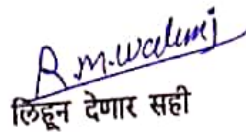 R.M.Walunj
लिहून देणार सही